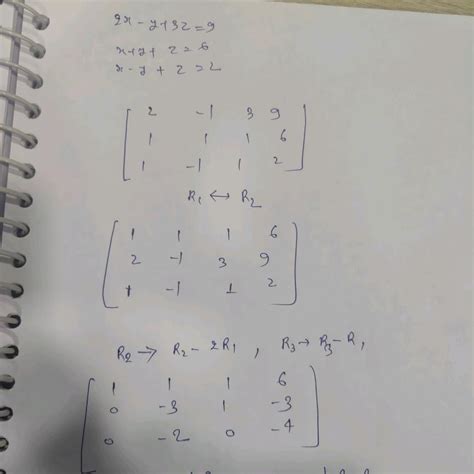 2x - y + 3z = 9
x + y + z = 6
x - y + z = 2
2 -1 3 9
1 1 1 6
1 -1 1 2
R1 ↔ R2
1 1 1 6
2 -1 3 9
1 -1 1 2
R2 → R2 - 2R1 , R3 → R3 - R1
1 1 1 6
0 -3 1 -3
0 -2 0 -4